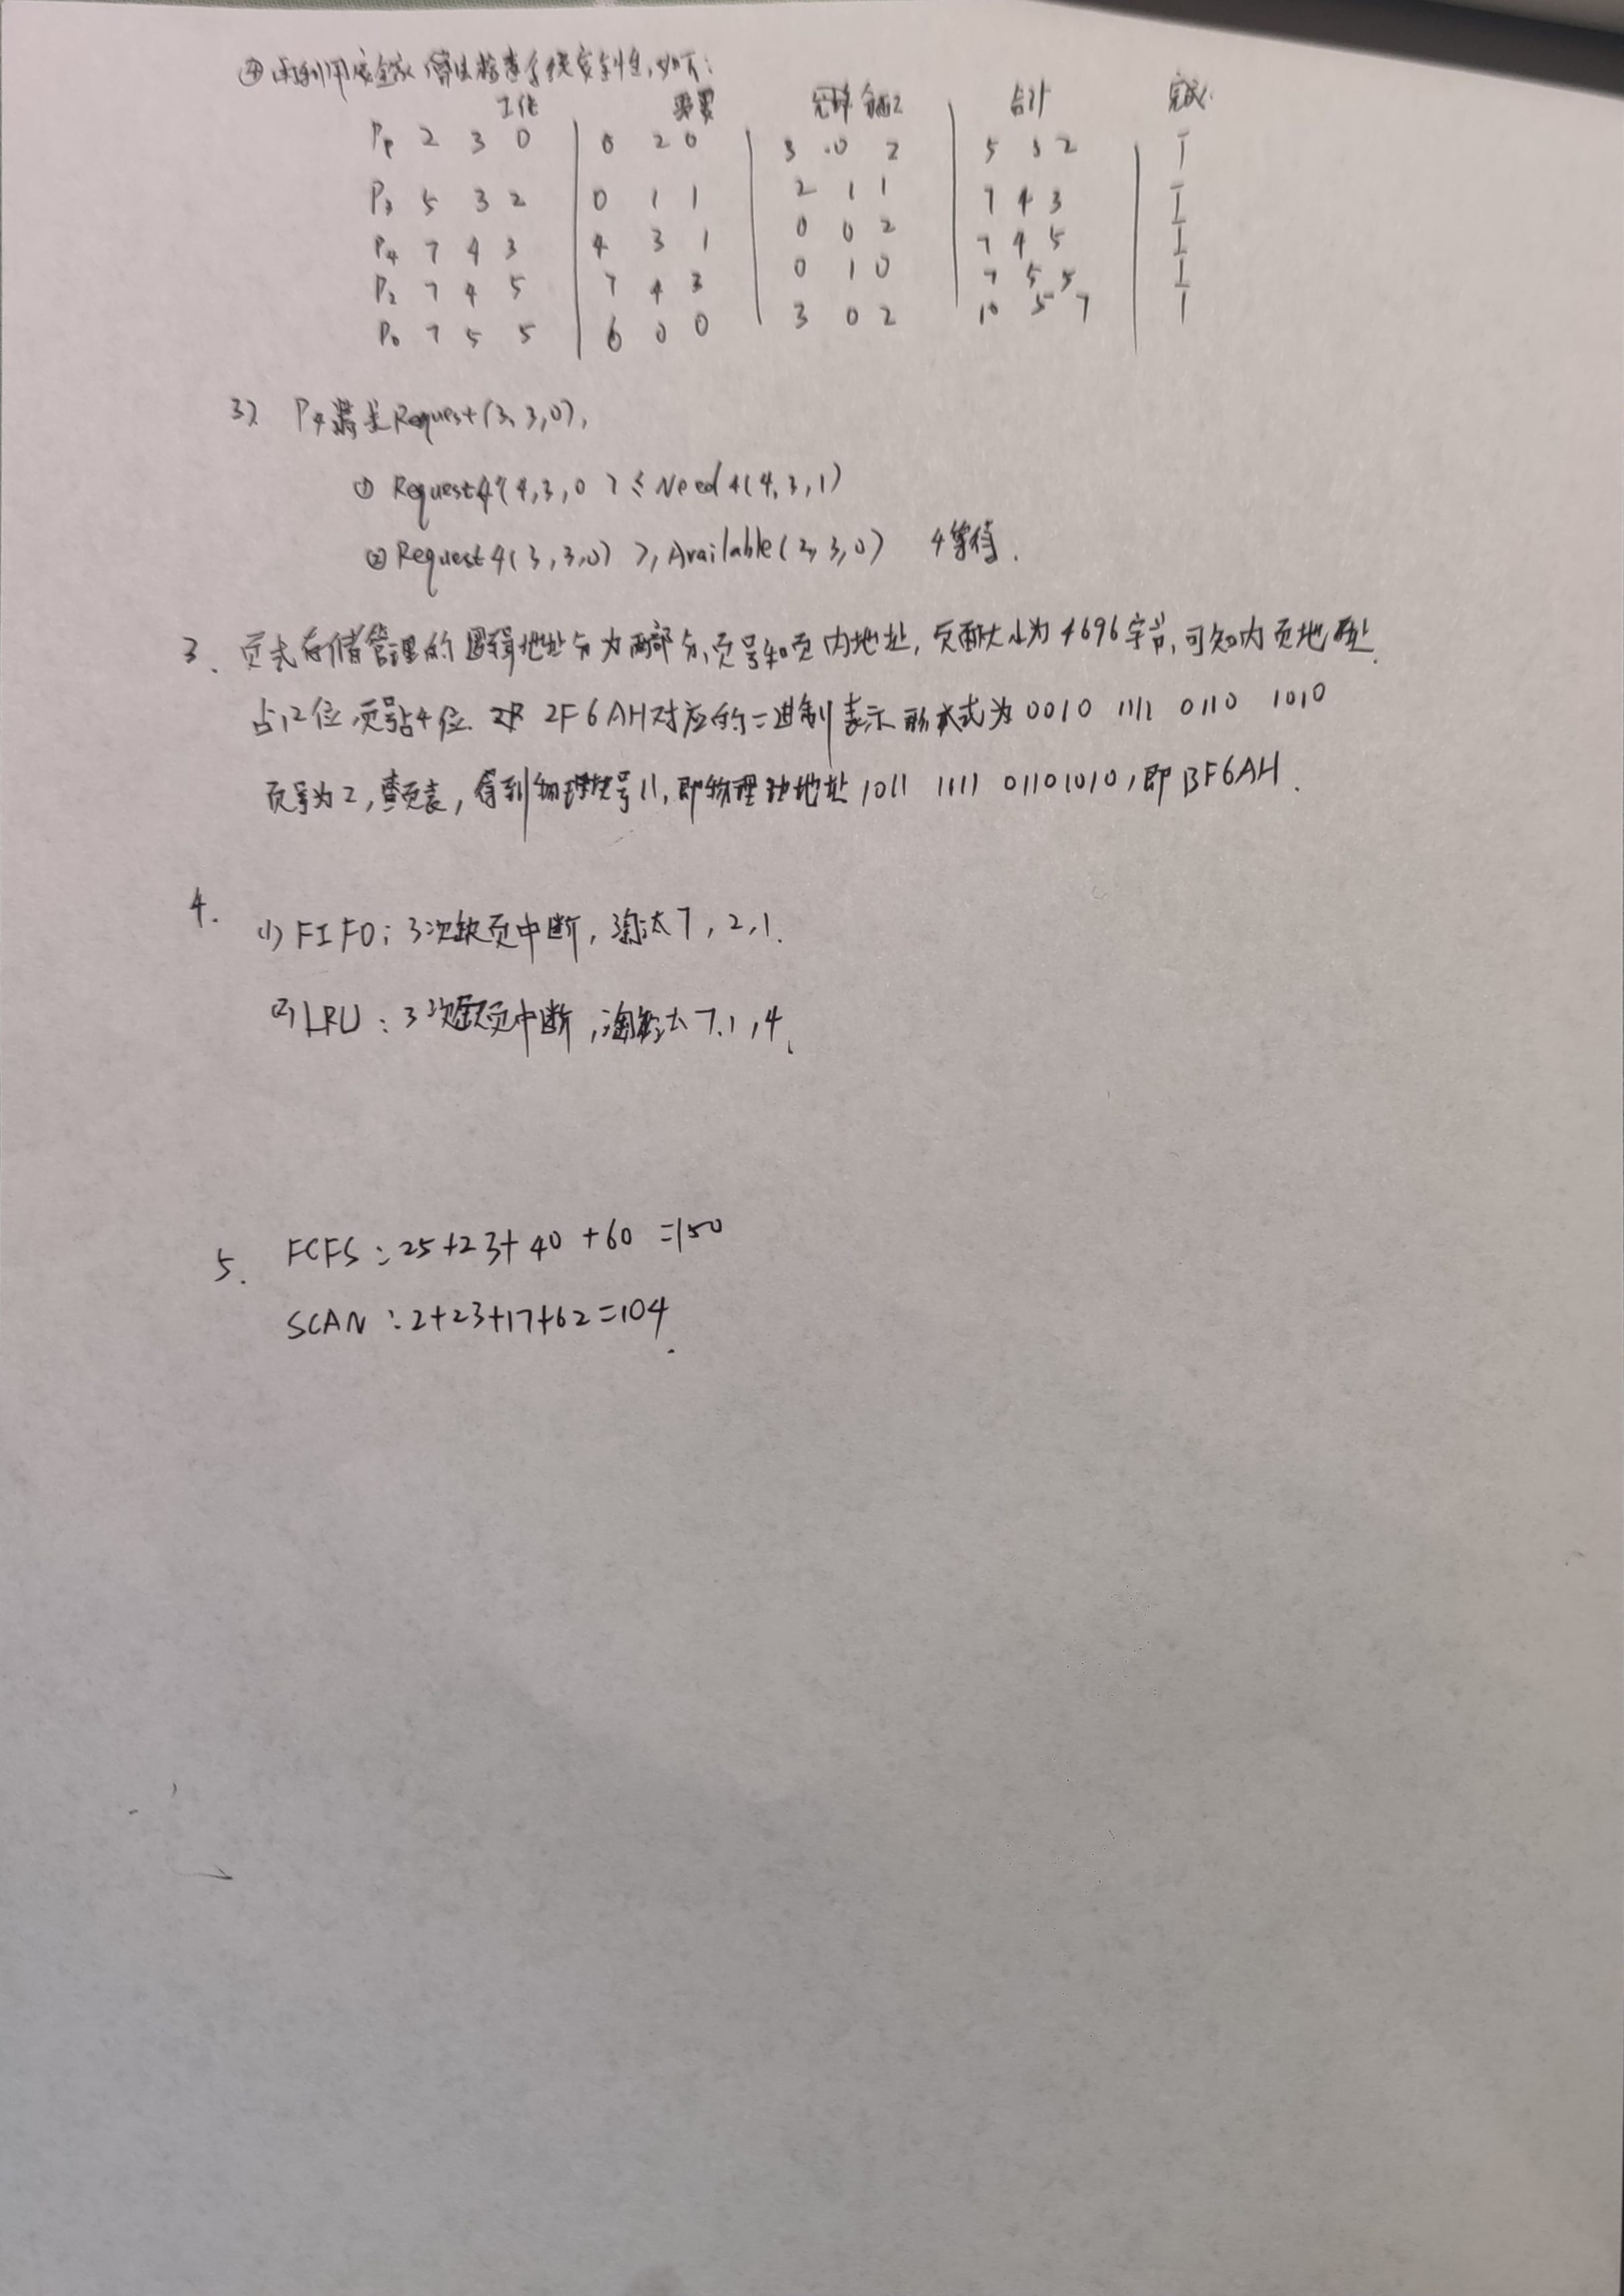 ④ 再利用安全 算法检查系统安全性,如下:
工作 需要 已 分配 合计 完成
P1 2 3 0 0 2 0 3 0 2 5 3 2 T
P3 5 3 2 0 1 1 2 1 1 7 4 3 T
P4 7 4 3 4 3 1 0 0 2 7 4 5 T
P2 7 4 5 7 4 3 0 1 0 7 5 5 T
P0 7 5 5 6 0 0 3 0 2 10 5 7 T
3) P4请求Request(3,3,0),
① Request4(4,3,0) ≤ Need4(4,3,1)
② Request4(3,3,0) >, Available(2,3,0) 4等待.
3、页式存储管理的逻辑地址分为两部分,页号和页内地址,页面大小为4696字节,可知内页地址
占12位,页号占4位. 2F6AH对应的二进制表示形式为0010 1111 0110 1010
页号为2,查页表,得到物理块号11,即物理地址1011 1111 01101010,即BF6AH.
4.
(1) FIFO: 3次缺页中断,淘汰7,2,1.
(2) LRU: 3次缺页中断,淘汰7.1,4.
5. FCFS: 25+23+40+60=150
SCAN: 2+23+17+62=104.